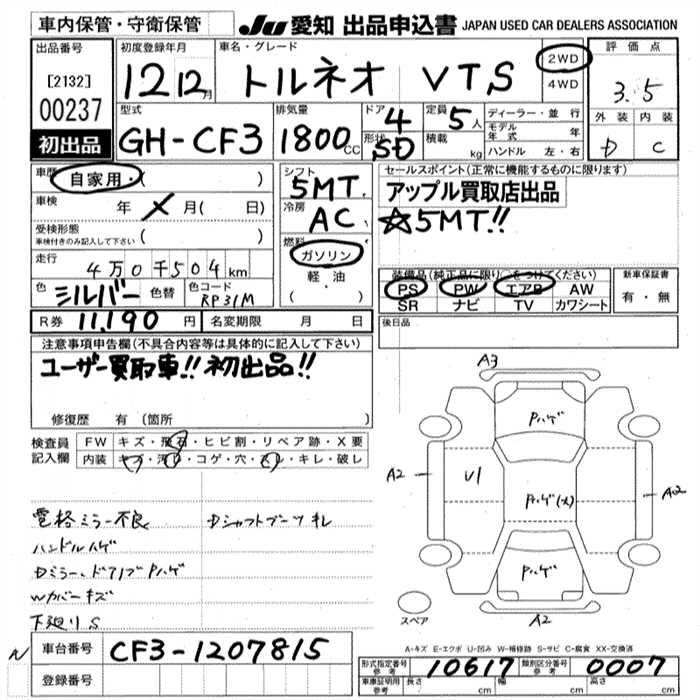 車内保管・守衛保管
JU 愛知 出品申込書 JAPAN USED CAR DEALERS ASSOCIATION
出品番号
[2132]
00237
初出品
初度登録年月
12 12月
車名・グレード
トルネオ VTS
2WD
4WD
評価点
3.5
外装 内装
D C
型式
GH-CF3
排気量
1800 CC
ドア
4
形状
SD
定員
5人
積載
kg
ディーラー・並行
モデル年式 年
ハンドル 左・右
車歴
自家用・( )
車検 年 X 月( 日)
受検形態
車検付きのみ記入して下さい ( )
走行
4万0千504km
色 シルバー 色替 色コード RP31M
シフト
5MT
冷房
AC
燃料
ガソリン
軽・油
( ・ )
セールスポイント(正常に機能するものに限ります)
アップル買取店出品
☆5MT!!
装備品(純正品に限り○をつけてください)
PS PW エアB AW
SR ナビ TV カワシート
新車保証書
有・無
R券 11,190 円 名変期限 月 日
後日品
注意事項申告欄(不具合内容等は具体的に記入して下さい)
ユーザー買取車!! 初出品!!
修復歴 有 (箇所 )
検査員記入欄
FW キズ・飛石・ヒビ割・リペア跡・X要
内装 キズ・汚レ・コゲ・穴・スレ・キレ・破レ
電格ミラー不良 Dシャフトブーツキレ
ハンドルハゲ
Dミラー、ドアノブPハゲ
Wカバーキズ
下廻りS
A3
Pハゲ
A2
U1
Pハゲ(大)
A2
Pハゲ
A2
スペア
N
車台番号 CF3-1207815
登録番号
A-キズ E-エクボ U-凹み W-補修跡 S-サビ C-腐食 XX-交換済
形式指定番号 参考 10617 類別区分番号 参考 0007
車庫証明用 参考 長さ cm 幅 cm 高さ cm